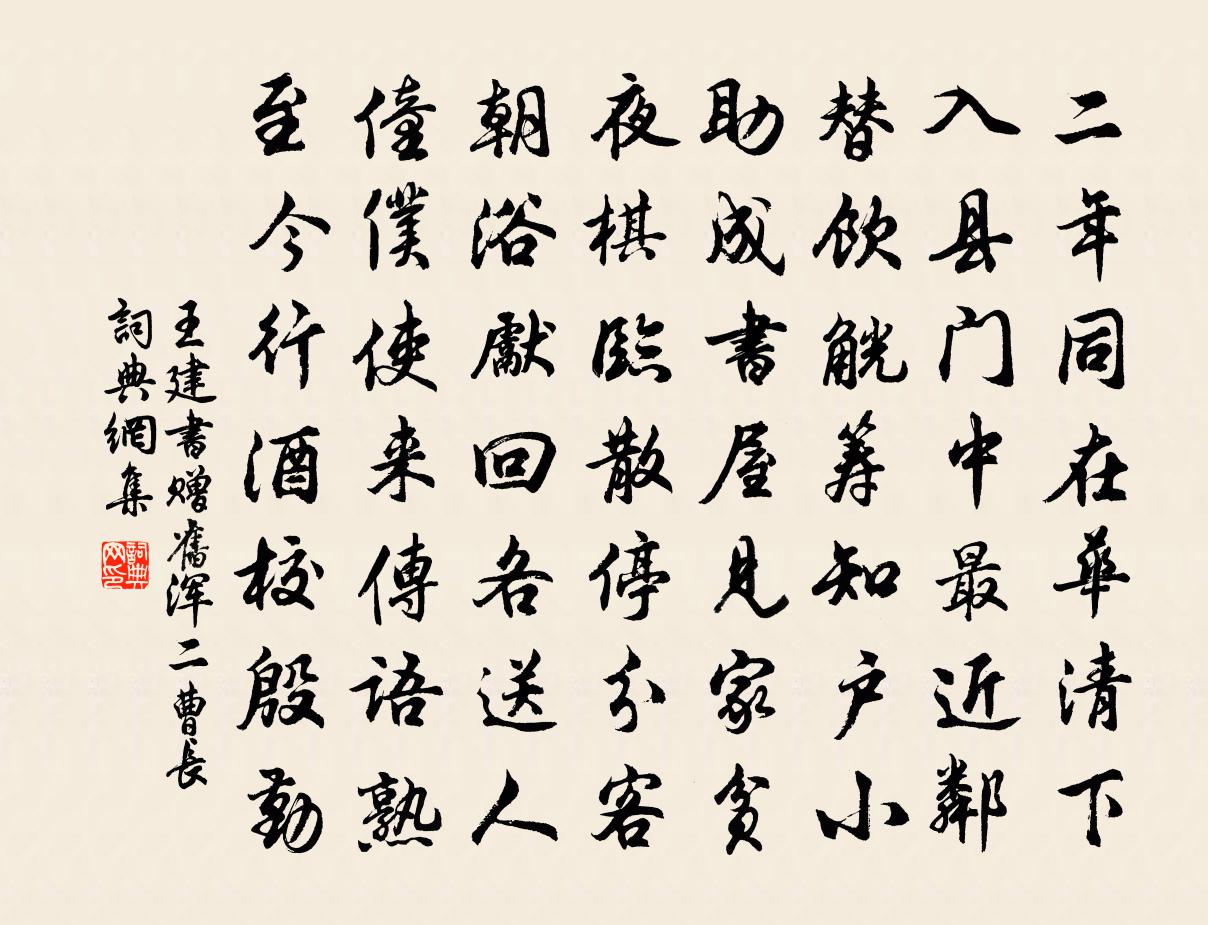 二年同在華清下
入县门中最近鄰
替饮觥筹知户小
助成書屋見家贫
夜棋臨散停分客
朝浴獻回各送人
僮僕使来傳語熟
至今行酒校殷勤
王建書赠舊浑二曹長
詞典網集
詞典网印